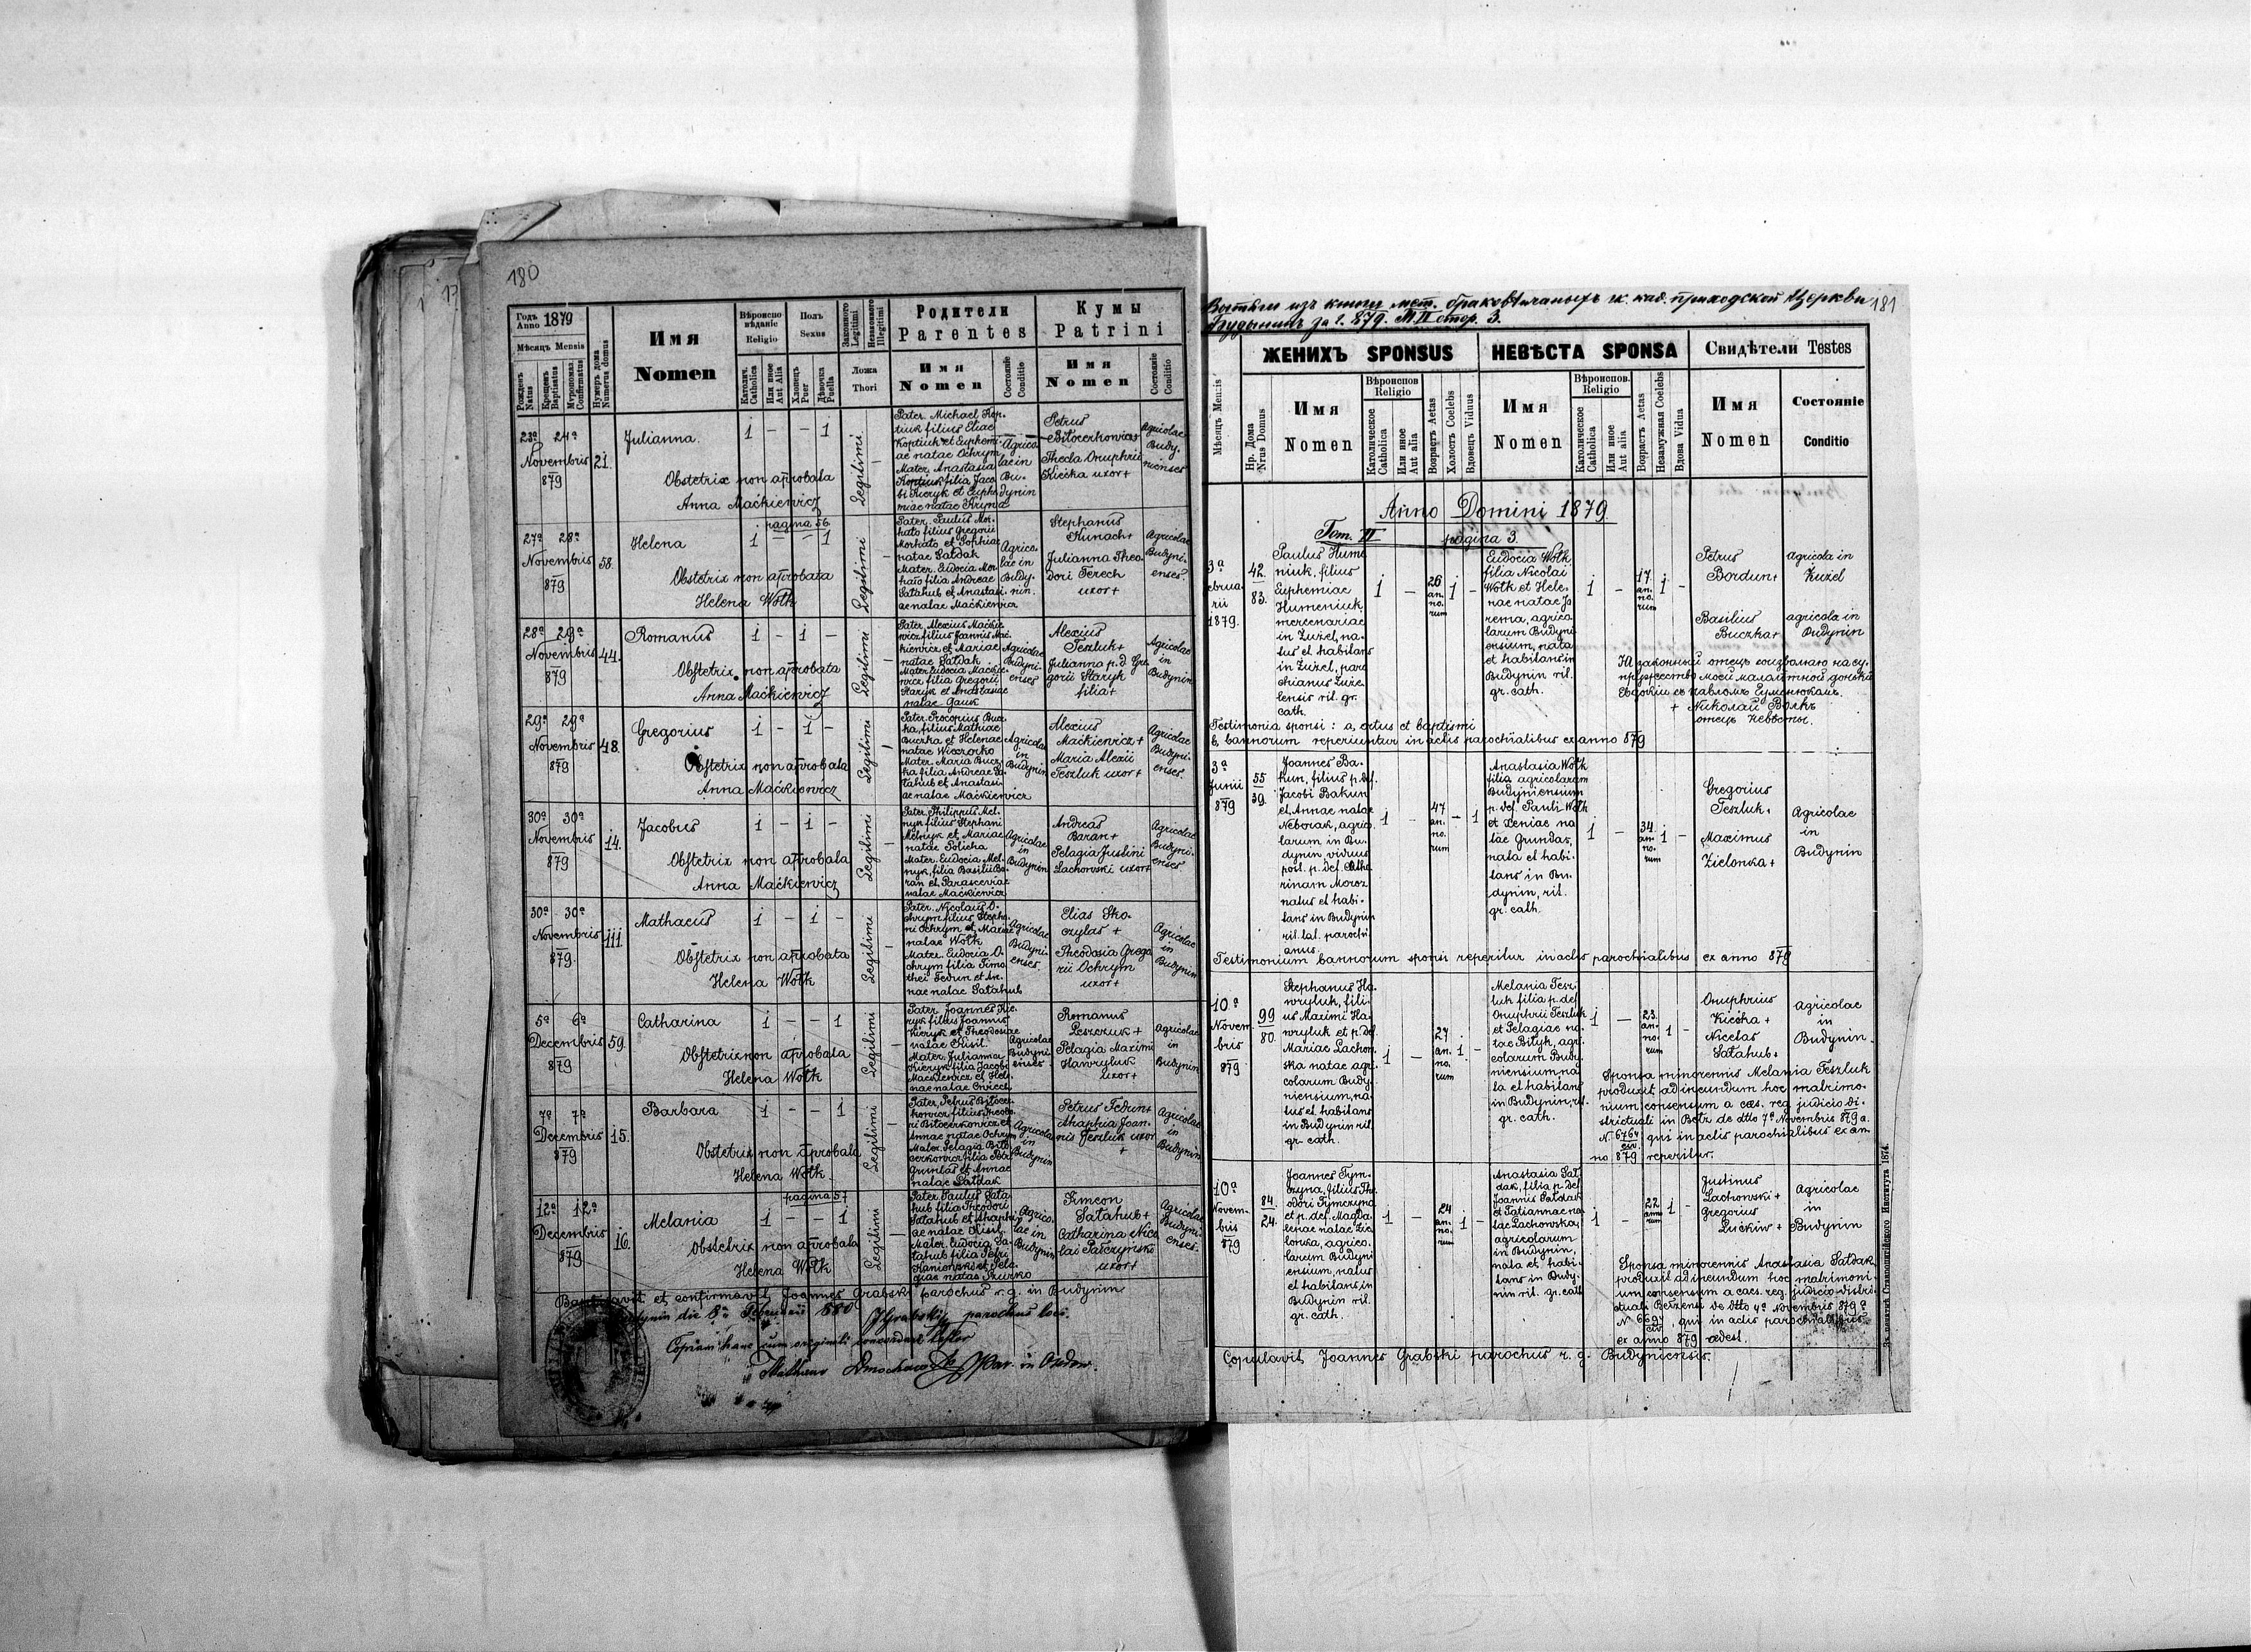 180
Годъ Anno 1879
Мѣсяцъ Mensis
Рожденъ Natus
Крещенъ Baptisatus
Мvропомаз. Confirmatus
Нумеръ дома Numerus domus
Имя
Nomen
Вѣроисповѣданіе
Religio
Католич. Catholica
Или иное Aut Alia
Полъ
Sexus
Хлопецъ Puer
Дѣвочка Puella
Законного Legitimi
Незаконного Illegitimi
Ложа
Thori
Родители
Parentes
Имя
Nomen
Состояніе Conditio
Кумы
Patrini
Имя
Nomen
Состояніе Conditio
23ª 24ª
Novembris
879
21.
Julianna
1 - - 1
Obstetrix non aprobata
Anna Maćkiewicz
Legitimi
Pater. Michael Kop-
tiuk filius Eliae
Koptiuk et Euphemi-
ae natae Ochrym
Mater. Anastasia
Koptiuk filia Jaco
bi Kieryk et Euphe
miae natae Kryna
Agrico
lae in
Bu-
dynin
Petrus
Biłocerkowicz
Thecla Onuphrii
Kiećka uxor+
Agricolae
Budy-
nienses
pagina 56
27ª 28ª
Novembris
879
58.
Helena
1 - - 1
Obstetrix non aprobata
Helena Wołk
Legitimi
Pater. Paulus Mor-
hato filius Gregorii
Morhato et Sophiae
natae Sałdak
Mater. Eudocia Mor
hato filia Andreae
Satahub et Anastasi
ae natae Maćkiewicz
Agrico-
lae in
Budy-
nin.
Stephanus
Kunach+
Julianna Theo
dori Terech
uxor+
Agricolae
Budyni-
enses
28ª 29ª
Novembris
879
44.
Romanus
1 - 1 -
Obstetrix non aprobata
Anna Maćkiewicz
Legitimi
Pater Alexius Maćkie
wicz filius Joannis Mać-
kiewicz et Mariae
natae Sałdak
Mater Eudocia Maćkie-
wicz filia Gregorii
Staryk et Anastasiae
natae Gauk
Agricolae
Budyni-
enses
Alexius
Teszluk+
Julianna p.d Gre
gorii Staryk
filia+
Agricolae
in
Budynin
29ª 29ª
Novembris
879
48.
Gregorius
1 - 1 -
Obstetrix non aprobata
Anna Maćkiewicz
Legitimi
Pater Procopius Bucz
ka, filius Mathiae
Buczka et Helenae
natae Wieczorko
Mater Maria Bucz
ka filia Andreae Sa-
tahub et Anastasi-
ae natae Maćkiewicz
Agricolae
in
Budynin
Alexius
Maćkiewicz+
Maria Alexii
Teszluk uxor+
Agricolae
Budyni-
enses.
30ª 30ª
Novembris
879
14.
Jacobus
1 - 1 -
Obstetrix non aprobata
Anna Maćkiewicz
Legitimi
Pater Philippus Mel-
nyk filius Stephani
Melnyk et Mariae
natae Policha
Mater. Eudocia Mel-
nyk, filia Basilii Ba-
ran et Parasceviae
natae Maćkiewicz
Agricolae
in
Budynin
Andreas
Baran+
Pelagia Justini
Lachowski uxor+
Agricolae
Budyni-
enses.
30ª 30ª
Novembris
879.
111
Mathaeus
1 - 1 -
Obstetrix non aprobata
Helena Wołk
Legitimi
Pater. Nicolaus O-
chrym filius Stepha-
ni Ochrym et Mariae
natae Wołk
Mater. Eudocia O-
chrym filia Timo
thei Fedun et An-
nae natae Satahub
Agricolae
Budyni-
enses
Elias Sko-
crylas+
Theodosia Grego
rii Ochrym
uxor+
Agricolae
in
Budynin
5ª 6ª
Decembris
879
59.
Catharina
1 - - 1
Obstetrix non aprobata
Helena Wołk
Legitimi
Pater Joannes Kie-
ryk filius Joannis
Kieryk et Theodosiae
natae Kisil
Mater. Julianna
Kieryk filia Jacobi
Maćkiewicz et Hele-
nae natae
Agricolae
Budyni-
enses
Romanus
Leszczuk+
Pelagia Maximi
Hawryluk
uxor+
Agricolae
in
Budynin
7ª 7ª
Decembris
879
15.
Barbara
1 - - 1
Obstetrix non aprobata
Helena Wołk.
Legitimi
Pater. Petrus Biłocer-
kowicz filius Theodo-
ri Biłocerkowicz et
Annae natae Ochrym
Mater. Pelagia Biło
cerkowicz filia Petri
Grundas et Annae
natae Sałdak
Agricolae
in
Budynin
Petrus Fedun+
Ahaphia Joan-
nis Teszluk uxor
+
Agricolae
in
Budynin
pagina 57
12ª 12ª
Decembris
879
16.
Melania
1 - - 1
Obstetrix non aprobata
Helena Wołk
Legitimi
Pater Paulus Sata
hub filia Theodori
Satahub et Ahaphi
ae natae Kisil
Mater. Eudocia Sa-
tahub filia Petri
Kaniowski et Pela-
giae natae Szurko
Agrico-
lae in
Budynin
Simeon
Satahub+
Catharina Nico
lai Pałczyński
uxor+
Agricolae
Budyni-
enses.
Baptisavit et confirmavit Joannes Grabski parochus r. g. in Budynin
Budynin die 8ª Februarii 880 JGrabski parochus loci.
Copiam hanc cum originali concordare testor
in Ozdow.
181
Вытягъ изъ книги мет. браковѣнчаныхъ гк. кад. приходской Церкви
Будынинъ за г. 879. Т. II стор. 3.
Мѣсяцъ Mensis
Нр. Дома Nrus Domus
ЖЕНИХЪ SPONSUS
Имя
Nomen
Вѣроиспов
Religio
Католическое Catholica
Или иное Aut alia
Возрастъ Aetas
Холостъ Coelebs
Вдовецъ Viduus
НЕВѢСТА SPONSA
Имя
Nomen
Вѣроиспов.
Religio
Католическое Catholica
Или иное Aut alia
Возрастъ Aetas
Незамужная Coelebs
Вдова Vidua
Свидѣтели Testes
Имя
Nomen
Состояніе
Conditio
Anno Domini 1879
Tom. II pagina 3.
3ª
Februa
rii
1879.
42.
83.
Paulus Hume
niuk, filius
Euphemiae
Humeniuk,
mercenariae
in Żużel, na-
tus et habitans
in Żużel, paro
chianus Żuże-
lensis rit. gr.
cath.
1 -
26
an-
no-
rum
1 -
Eudocia Wołk
filia Nicolai
Wołk et Hele-
nae natae Ja
rema, agrico
larum Budyni
ensium, nata
et habitans in
Budynin rit.
gr. cath.
1 -
17
an-
no-
rum
1 -
Petrus
Bordun+
agricola in
Żużel
Basilius
Buczka+
agricola in
Budynin
Я законный отецъ соизваляю на су-
пружество моей малалѣтной дочьки
Евдокіи съ Павломъ Гуменюкомъ.
+ Николай Волкъ
отецъ невѣсты.
Testimonia sponsi: a, ortus et baptismi
b, bannorum reperiuntur in actis parochialibus ex anno 879
3ª
Junii
879
55
39.
Joannes Ba-
kun, filius p. def.
Jacobi Bakun
et Annae natae
Neborak, agrico
larum in Bu-
dynin viduus
post. p. def. Catha
rinam Moroz
natus et habi-
tans in Budynin
rit. lat. parochi
anus.
1 -
47
an-
no-
rum
- 1
Anastasia Wołk
filia agricolarum
Budyniensium
p. def. Pauli Wołk
et Xeniae na
tae Grundas,
nata et habi-
tans in Bu-
dynin, rit.
gr. cath.
1 -
34
an-
no-
rum
1 -
Gregorius
Teszluk+
Maximus
Zielonka+
Agricolae
in
Budynin
Testimonium bannorum sponsi reperitur in actis parochialibus ex anno 879
10ª
Novem-
bris
879
99
80.
Stephanus Ha-
wryluk, fili-
us Maximi Ha-
wryluk et p. def.
Mariae Lachow
ska natae agri
colarum Budy-
niensium, na-
tus et habitans
in Budynin rit.
gr. cath.
1 -
27
an-
no-
rum
1 -
Melania Tesz
luk filia p. def
Onuphrii Teszluk
et Pelagiae na-
tae Bityk, agri
colarum Budy-
niensium, na-
ta et habitans
in Budynin, rit.
gr. cath.
1 -
23
an-
no-
rum
1 -
Onuphrius
Kiećka+
Nicetas
Satahub+
Agricolae
in
Budynin.
Sponsa minorennis Melania Teszluk
produxit, ad ineundum hoc matrimo-
nium, consensum a caes. reg. judicio di-
strictuali in Bełz de dtto 7ª Novembris 879 a.
N. 6764 civ qui in actis parochialibus ex an-
no 879 reperitur.
10ª
Novem-
bris
879
84
24.
Joannes Tym-
czyna, filius The
odori Tymczyna
et p. def. Magda
lenae natae Zie
lonka, agrico-
larum Budyni
ensium, natus
et habitans, in
Budynin rit.
gr. cath.
1 -
24
an-
no-
rum
1 -
Anastasia Sał
dak, filia p. def.
Joannis Sałdak
et Tatiannae na-
tae Lachowska,
agricolarum
in Budynin,
nata et habi-
tans in Budy-
nin rit. gr. cath
1 -
22
anno
rum
1 -
Justinus
Lachowski+
Gregorius
Luckiw+
Agricolae
in
Budynin
Sponsa minorennis Anastasia Sałdak
produxit ad ineundum hoc matrimoni-
um consensum a caes. reg. judicio distri-
ctuali Bełzensi de dtto 4ª Novembris 879 a
N 6694 civ, qui in actis parochialibus
ex anno 879 adest.
Copulavit Joannes Grabski parochus r. g. Budyniensis.
Зъ печатнѣ Ставропигійского Института 1874.